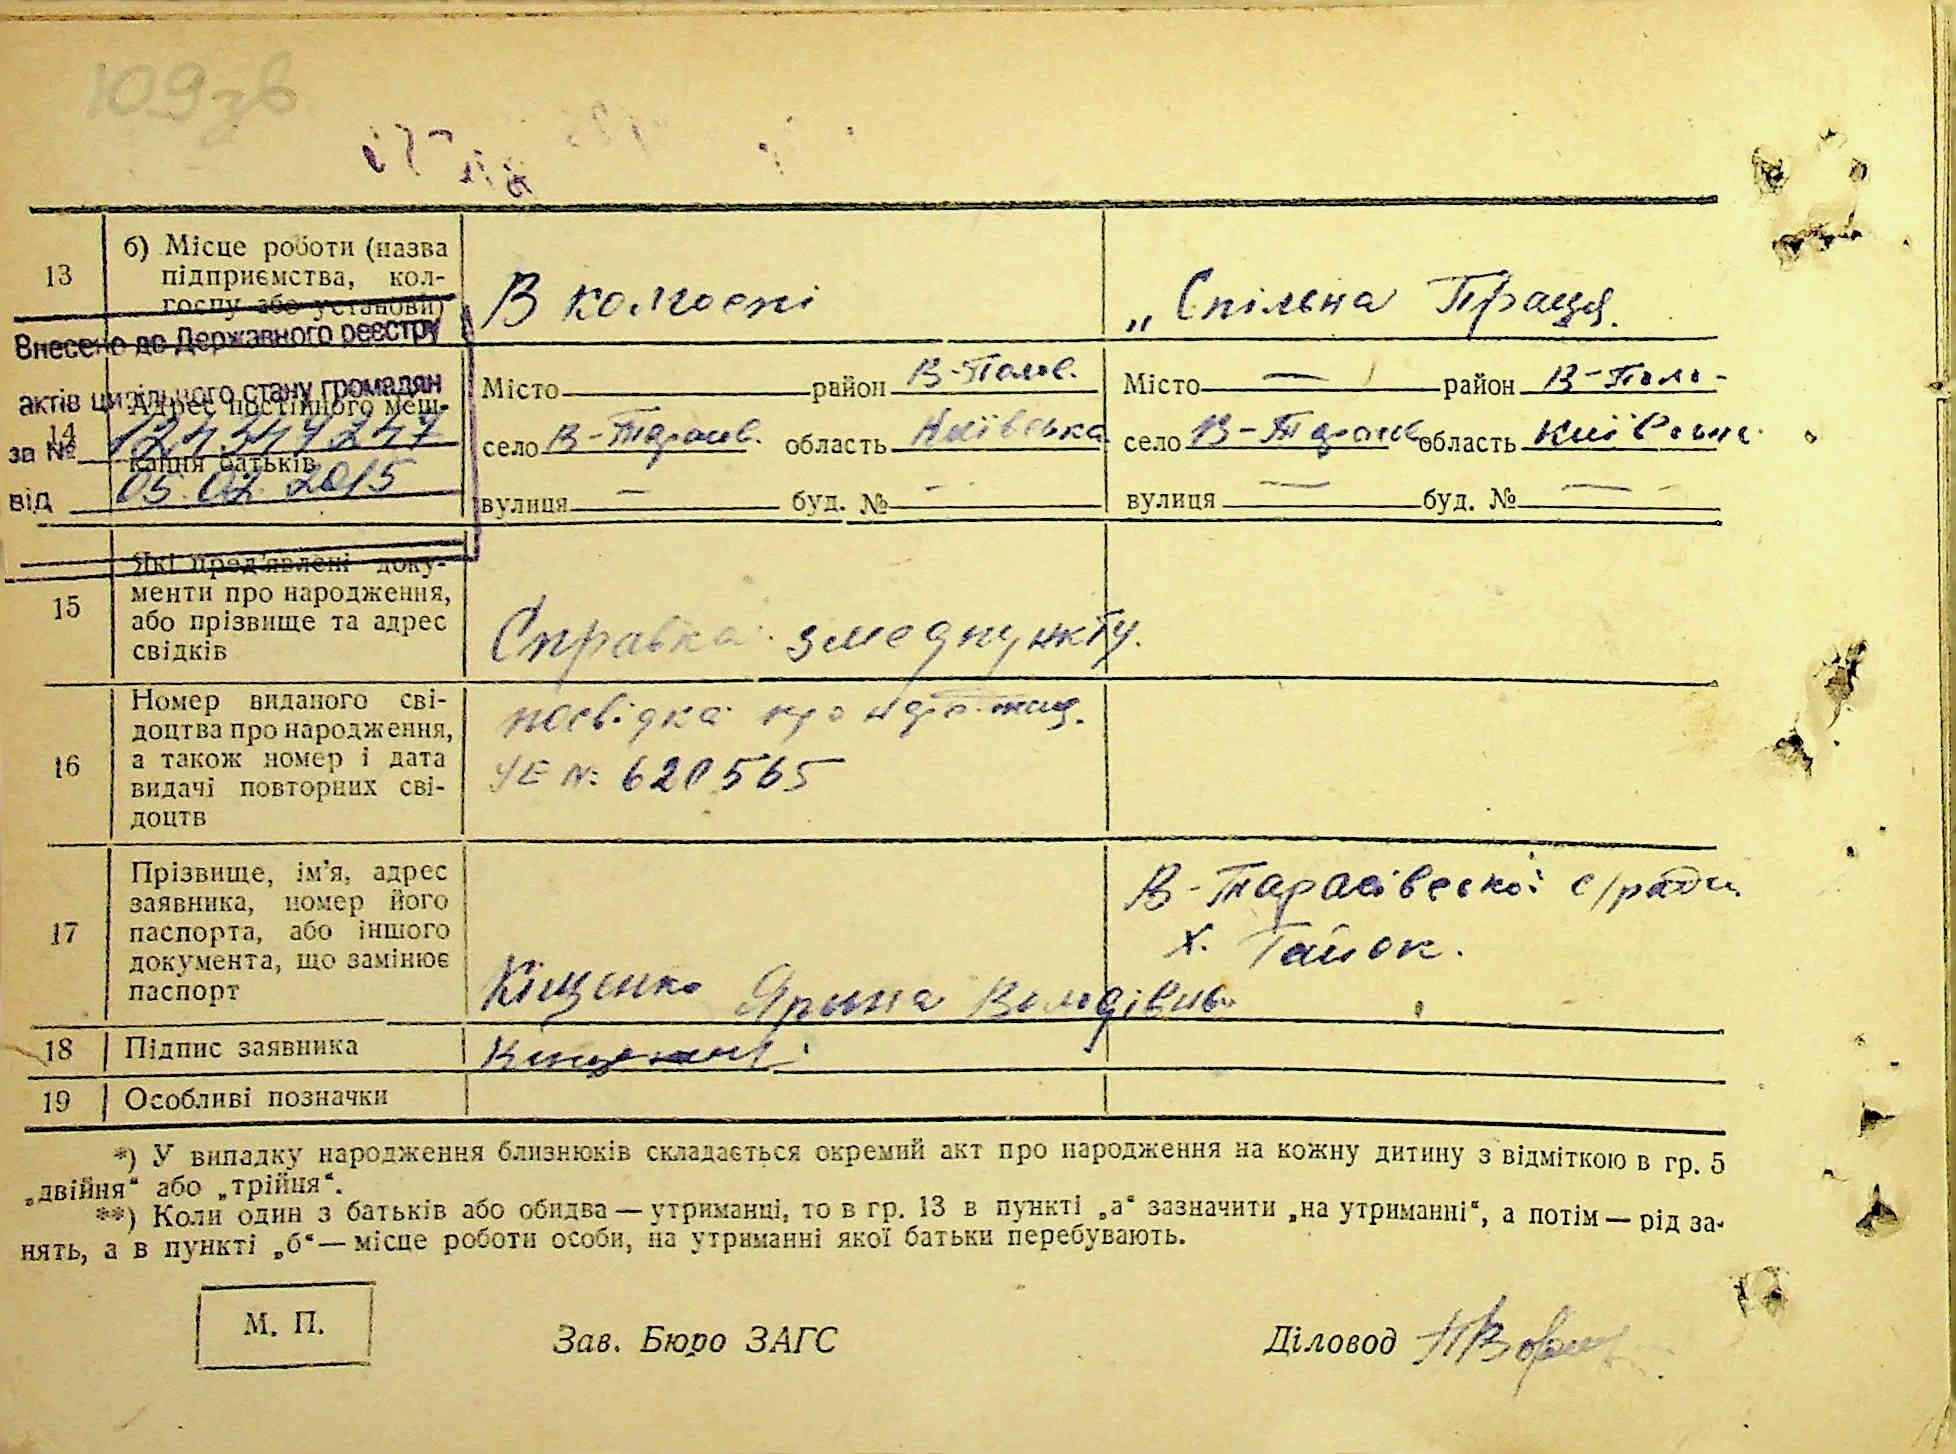 109зв
13
б) Місце роботи (назва
підприємства, кол-
госпу або установи)
В колгоспі
„Спільна Праця.
Внесено до Державного реєстру
актів цивільного стану громадян
за №
від 05.02.2015
14
Адрес постійного меш-
кання батьків
Місто район В-Полов.
село В-Тарасів. область Київська
вулиця — буд. № —
Місто — район В-Поло-
село В-Тарасів. область Київська
вулиця — буд. № —
15
Які пред'явлені доку-
менти про народження,
або прізвище та адрес
свідків
Справка з медпункту.
16
Номер виданого сві-
доцтва про народження,
а також номер і дата
видачі повторних сві-
доцтв
посвідка про
УЕ №: 620565
17
Прізвище, ім'я, адрес
заявника, номер його
паспорта, або іншого
документа, що замінює
паспорт
В-Тарасівської с/ради
х. Гайок.
Кіщенко Ярина
18
Підпис заявника
19
Особливі позначки
*) У випадку народження близнюків складається окремий акт про народження на кожну дитину з відміткою в гр. 5
„двійня“ або „трійня“.
**) Коли один з батьків або обидва — утриманці, то в гр. 13 в пункті „а“ зазначити „на утриманні“, а потім — рід за-
нять, а в пункті „б“ — місце роботи особи, на утриманні якої батьки перебувають.
М. П.
Зав. Бюро ЗАГС
Діловод